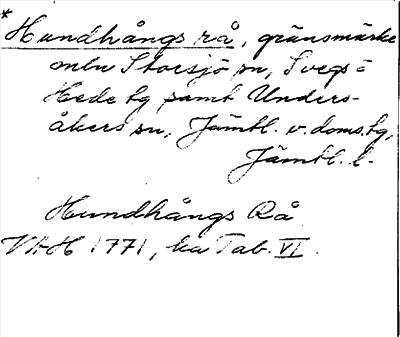 * Hundhångs rå, gränsmärke
mln Storsjö sn, Svegs o
Hede tg samt Unders-
åkers sn, Jämtl. v. doms. tg,
Jämtl. l.
Hundhångs Rå
1771, ka Tab. VI.